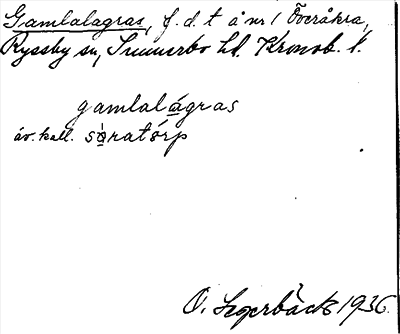 Gamlalagras, f.d. t å nr 1 Överåkra,
Ryssby sn, Sunnerbo hd. Kronob. l.
gamlalágras
äv. kall. sòratórp
O. Segerbäck 1936.